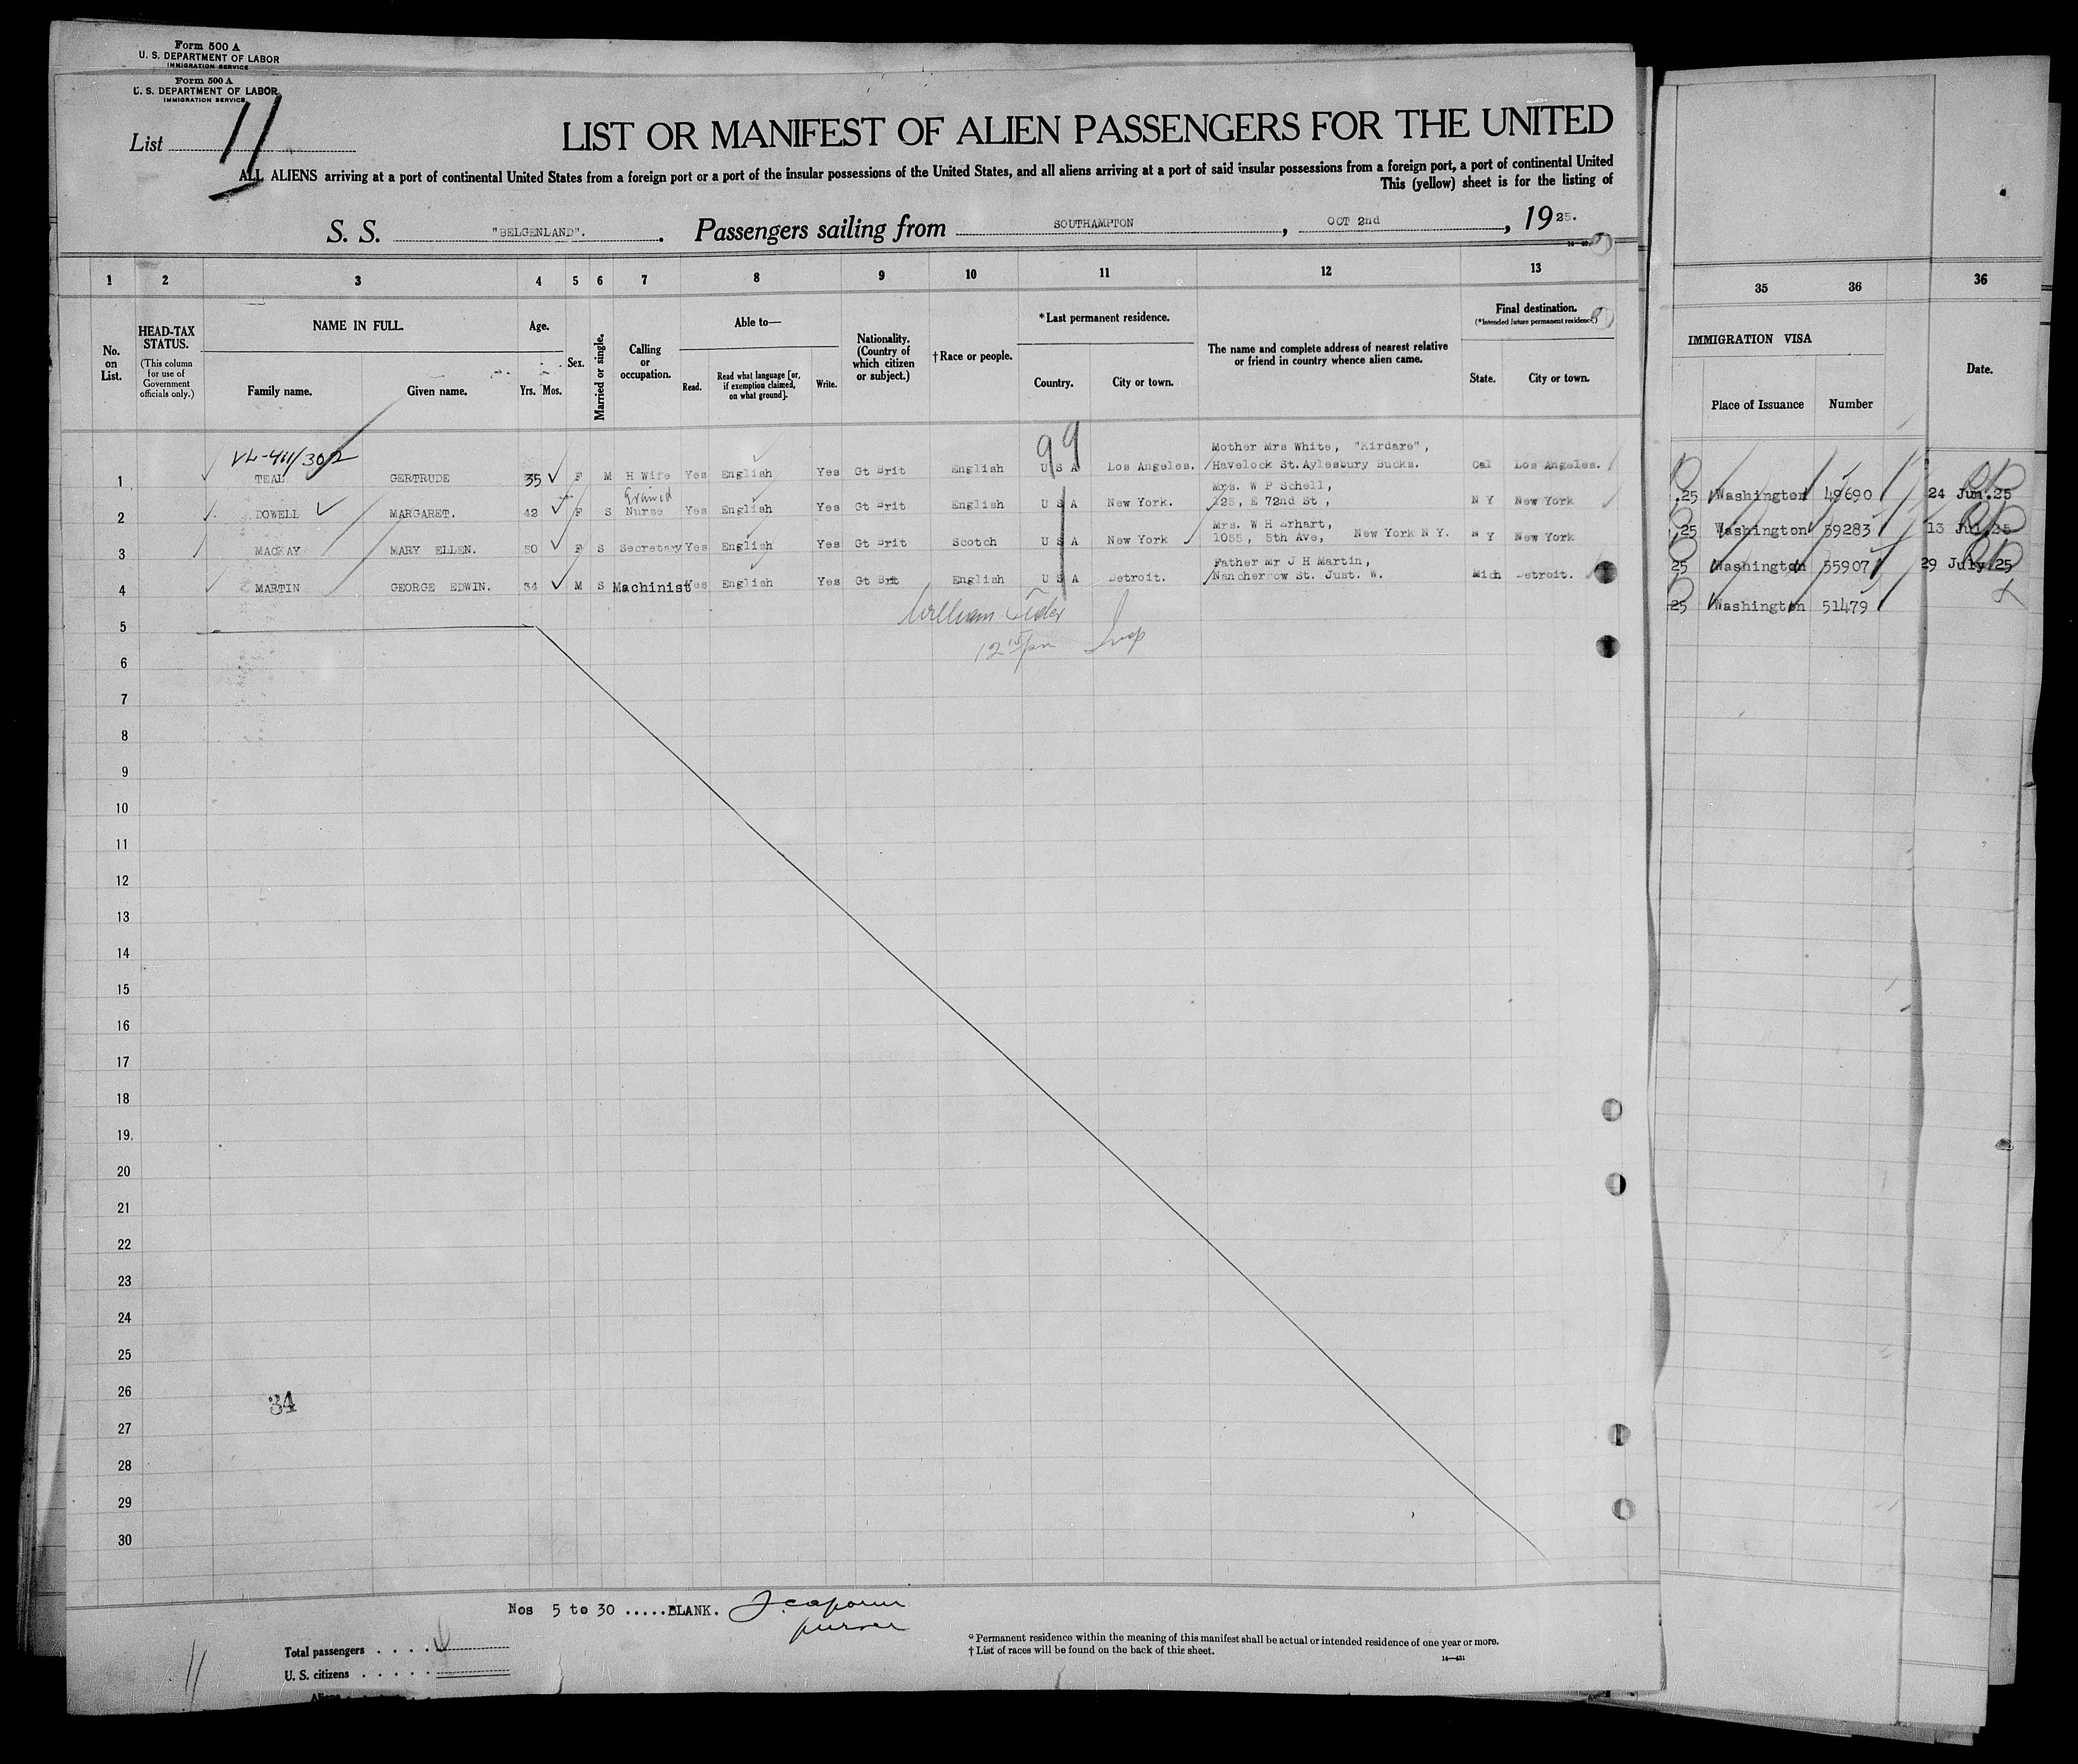 Form 500 A
U. S. DEPARTMENT OF LABOR
IMMIGRATION SERVICE
Form 500 A
U. S. DEPARTMENT OF LABOR
IMMIGRATION SERVICE
List 11
LIST OR MANIFEST OF ALIEN PASSENGERS FOR THE UNITED
ALL ALIENS arriving at a port of continental United States from a foreign port or a port of the insular possessions of the United States, and all aliens arriving at a port of said insular possessions from a foreign port, a port of continental United
This (yellow) sheet is for the listing of
S. S. "BELGENLAND". Passengers sailing from SOUTHAMPTON, OCT 2nd, 1925.
1 2 3 4 5 6 7 8 9 10 11 12 13 35 36 36
HEAD-TAX STATUS. (This column for use of Government officials only.)
No. on List.
NAME IN FULL.
Family name. Given name.
Age.
Yrs. Mos.
Sex.
Married or single.
Calling or occupation.
Able to—
Read. Read what language [or, if exemption claimed, on what ground]. Write.
Nationality. (Country of which citizen or subject.)
†Race or people.
*Last permanent residence.
Country. City or town.
The name and complete address of nearest relative or friend in country whence alien came.
Final destination.
(*Intended future permanent residence.)
State. City or town.
IMMIGRATION VISA
Place of Issuance Number
Date.
99
VL-411/302
Mother Mrs White, "Kirdare",
1 TEAL GERTRUDE 35 F M H Wife Yes English Yes Gt Brit English U S A Los Angeles. Havelock St. Aylesbury Bucks. Cal Los Angeles. .25 Washington 49690 24 Jun.25
Mrs. W P Schell,
2 DOWELL MARGARET. 42 F S Nurse Yes English Yes Gt Brit English U S A New York. 125, E 72nd St, N Y New York .25 Washington 59283 13 Jul.25
Mrs. W H Erhart,
3 MACKAY MARY ELLEN. 50 F S Secretary Yes English Yes Gt Brit Scotch U S A New York 1055, 5th Ave, New York N Y. N Y New York 25 Washington 55907 29 July.25
Father Mr J H Martin,
4 MARTIN GEORGE EDWIN. 34 M S Machinist Yes English Yes Gt Brit English U S A Detroit. Nancherrow St. Just. W. Mich Detroit. 25 Washington 51479
5
6
7
8
9
10
11
12
13
14
15
16
17
18
19.
20
21
22
23
24
25
26
34
27
28
29
30
Nos 5 to 30 .....BLANK.
purser
Total passengers . . . .
U. S. citizens . . . . .
Aliens
* Permanent residence within the meaning of this manifest shall be actual or intended residence of one year or more.
† List of races will be found on the back of this sheet.
14—431
11